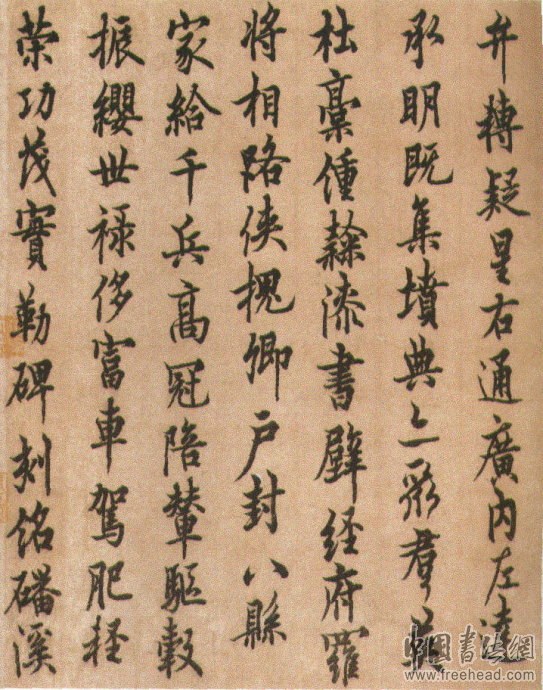 弁轉疑星右通廣內左達
承明既集墳典亦聚羣英
杜稾鍾隸漆書壁経府羅
將相路俠槐卿戶封八縣
家給千兵高冠陪輦驅轂
振纓世祿侈富車駕肥軽
策功茂實勒碑刻銘磻溪
中國書法網
www.freehead.com